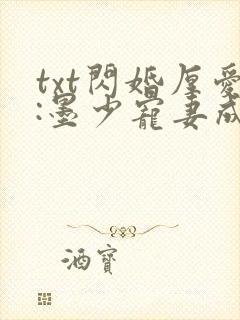 txt閃婚厚愛
:墨少寵妻成
酒寶